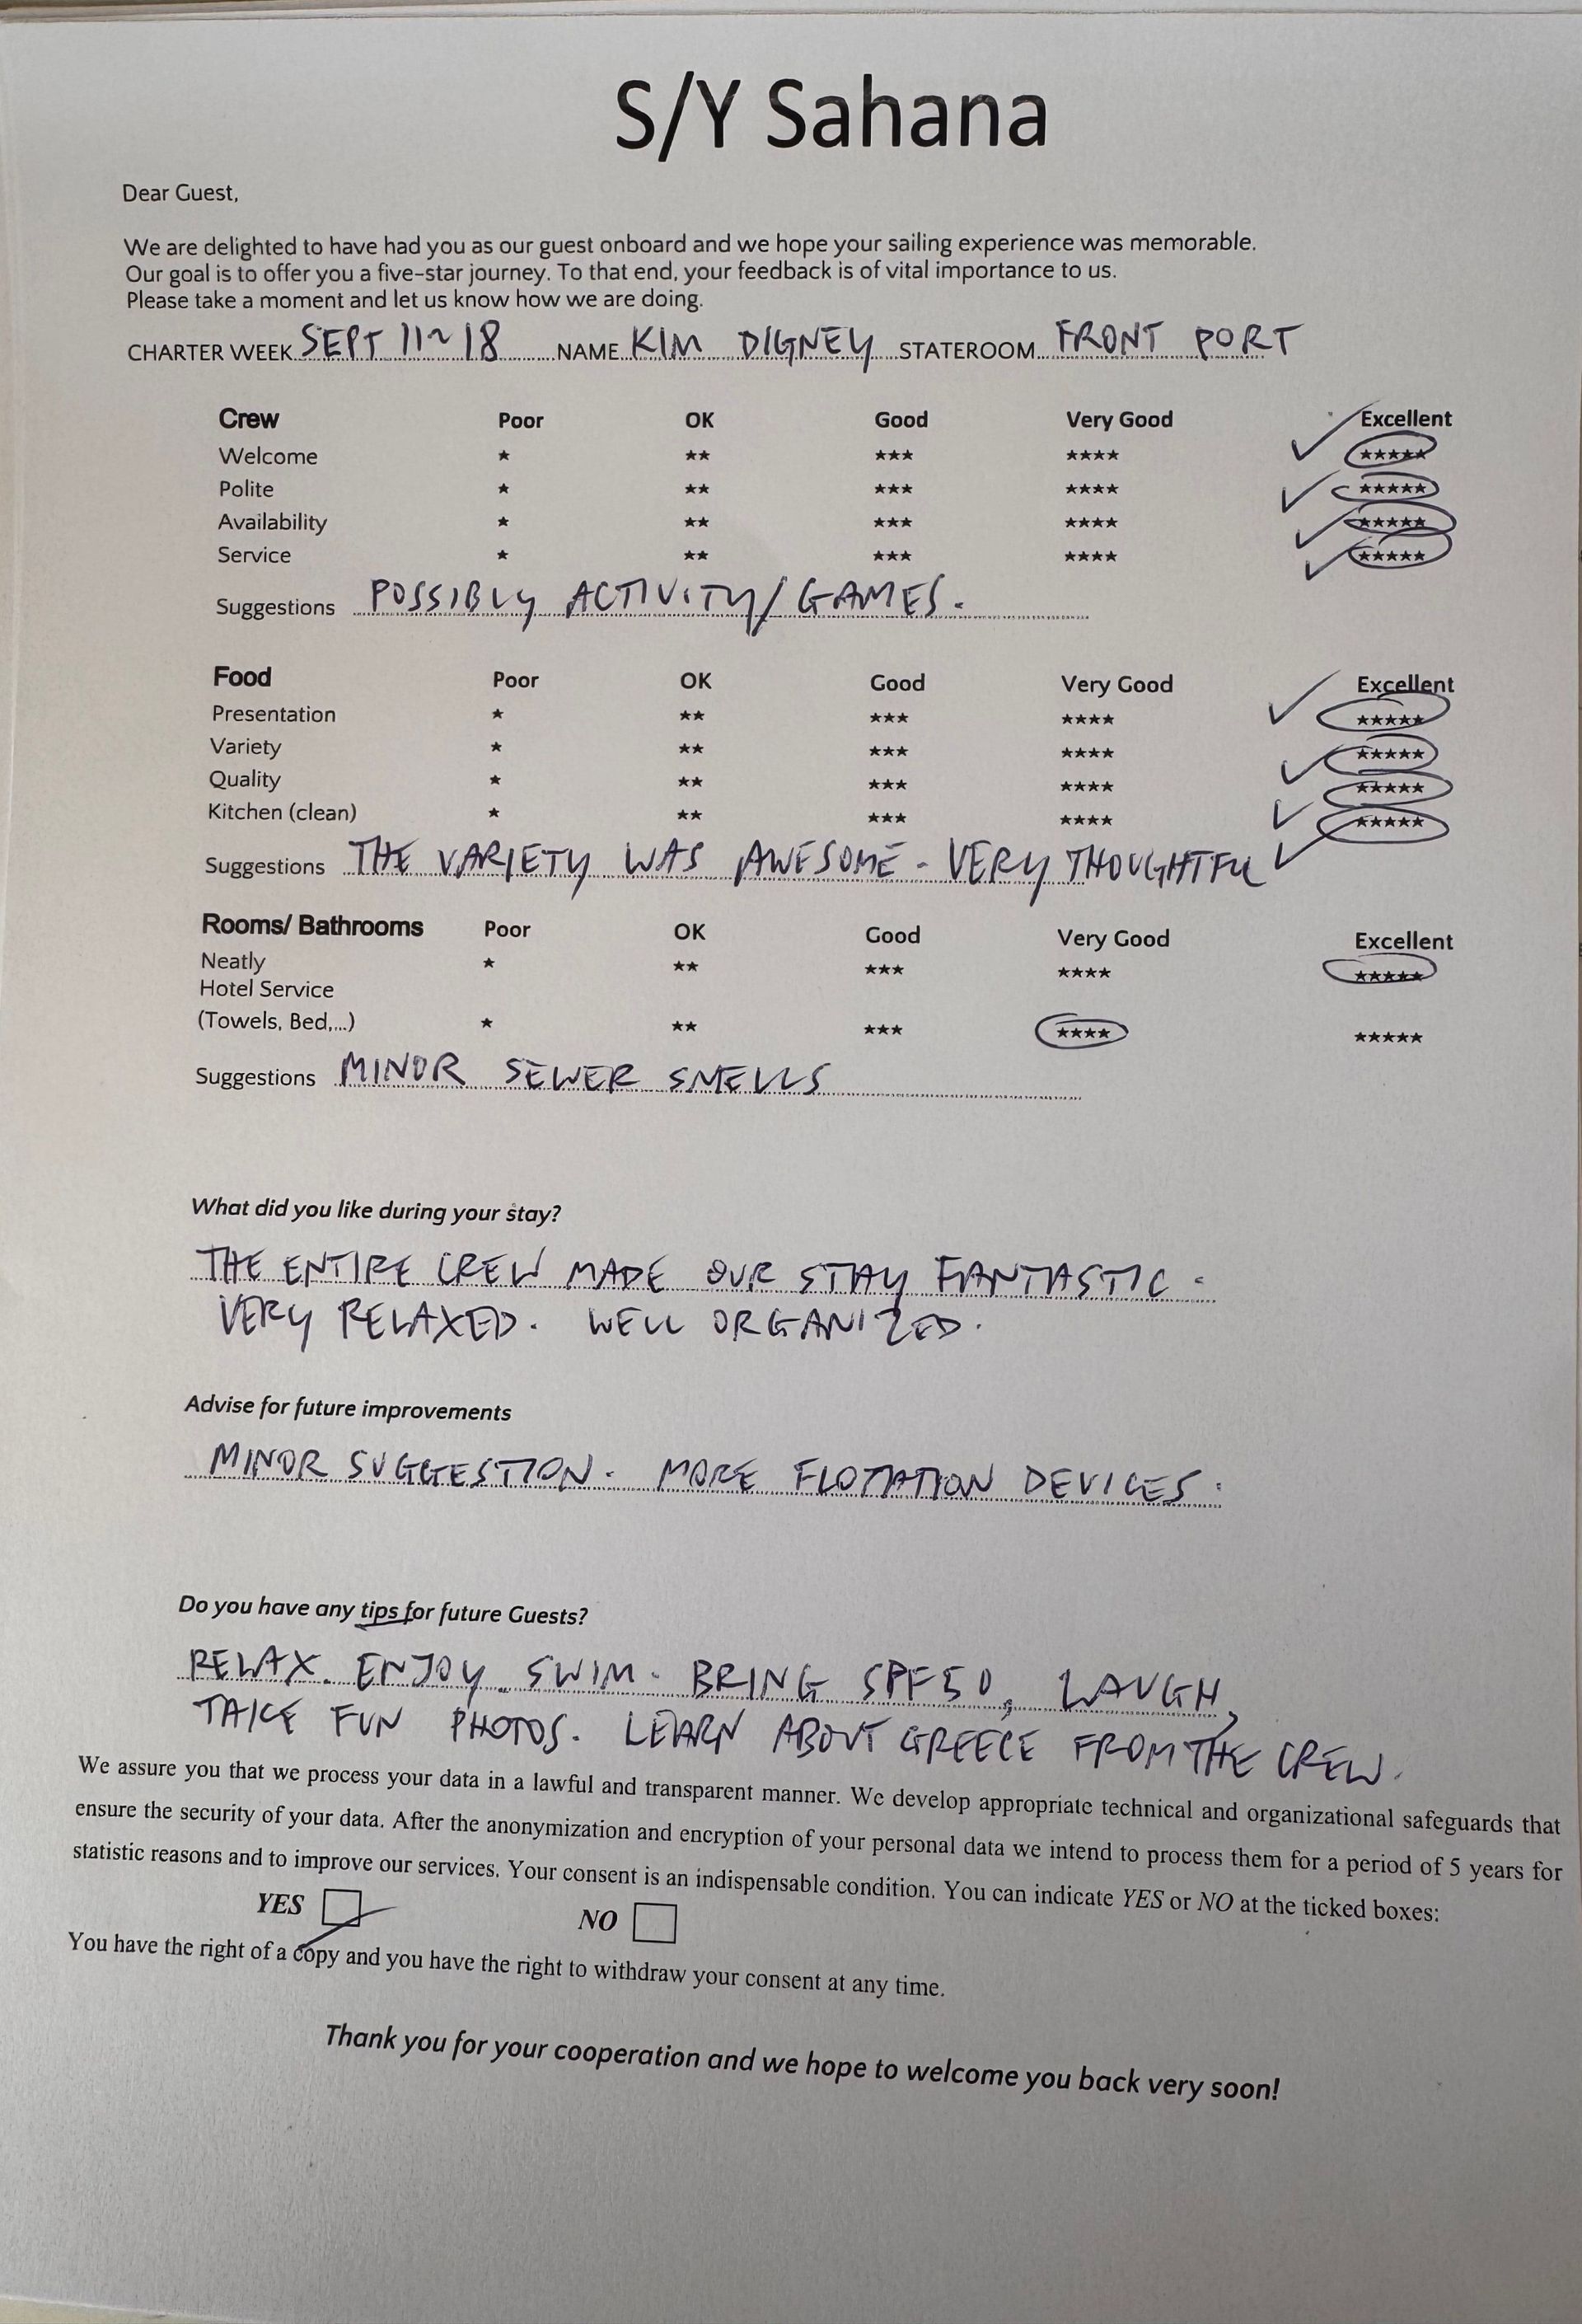 S/Y Sahana
Dear Guest,
We are delighted to have had you as our guest onboard and we hope your sailing experience was memorable.
Our goal is to offer you a five-star journey. To that end, your feedback is of vital importance to us.
Please take a moment and let us know how we are doing.
CHARTER WEEK SEPT 11~18 NAME KIM DIGNEY STATEROOM FRONT PORT
Crew Poor OK Good Very Good Excellent
Welcome * ** *** **** *****
Polite * ** *** **** *****
Availability * ** *** **** *****
Service * ** *** **** *****
Suggestions POSSIBLY ACTIVITY/GAMES.
Food Poor OK Good Very Good Excellent
Presentation * ** *** **** *****
Variety * ** *** **** *****
Quality * ** *** **** *****
Kitchen (clean) * ** *** **** *****
Suggestions THE VARIETY WAS AWESOME - VERY THOUGHTFUL
Rooms/ Bathrooms Poor OK Good Very Good Excellent
Neatly * ** *** **** *****
Hotel Service
(Towels, Bed,...) * ** *** **** *****
Suggestions MINOR SEWER SMELLS
What did you like during your stay?
THE ENTIRE CREW MADE OUR STAY FANTASTIC.
VERY RELAXED. WELL ORGANIZED.
Advise for future improvements
MINOR SUGGESTION. MORE FLOTATION DEVICES.
Do you have any tips for future Guests?
RELAX. ENJOY. SWIM. BRING SPF50, LAUGH,
TAKE FUN PHOTOS. LEARN ABOUT GREECE FROM THE CREW.
We assure you that we process your data in a lawful and transparent manner. We develop appropriate technical and organizational safeguards that
ensure the security of your data. After the anonymization and encryption of your personal data we intend to process them for a period of 5 years for
statistic reasons and to improve our services. Your consent is an indispensable condition. You can indicate YES or NO at the ticked boxes:
YES NO
You have the right of a copy and you have the right to withdraw your consent at any time.
Thank you for your cooperation and we hope to welcome you back very soon!